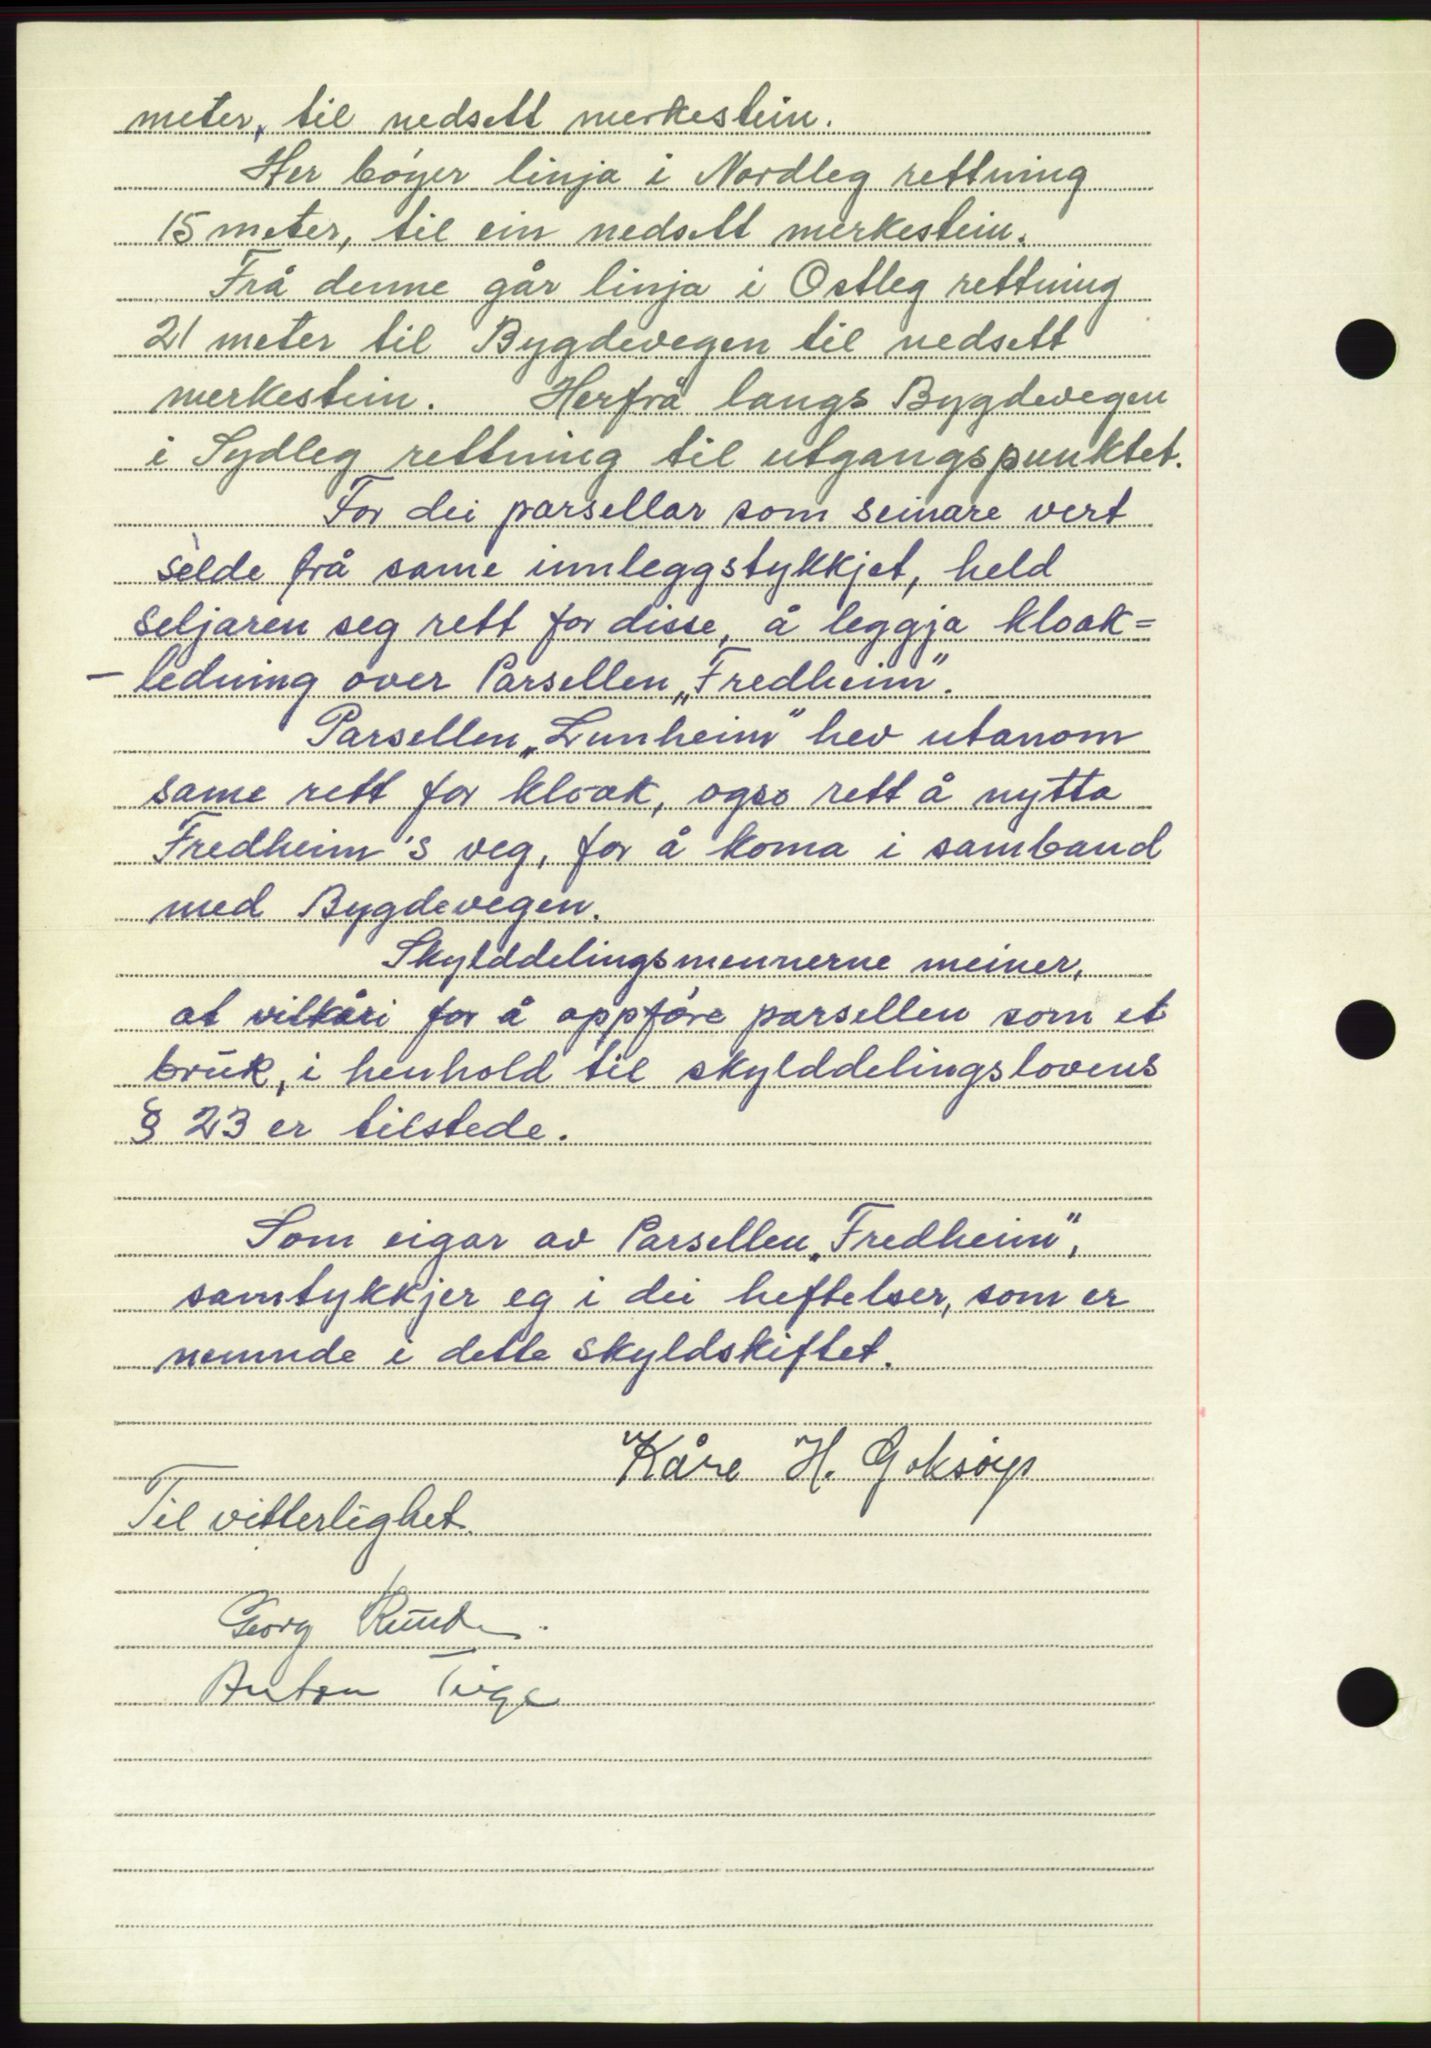 meter, til nedsett merkestein.
Her bøyer linja i Nordleg rettning
15 meter, til ein nedsett merkestein.
Frå denne går linja i Ostleg rettning
21 meter til Bygdevegen til nedsett
merkestein. Herfrå langs Bygdevegen
i Sydleg rettning til utgangspunktet.
For dei parsellar som seinare vert
selde frå same innleggstykkjet, held
seljaren seg rett for disse, å leggja kloak=
- ledning over Parsellen „Fredheim".
Parsellen „Lunheim" hev utanom
same rett for kloak, ogso rett å nytta
Fredheim's veg, for å koma i samband
med Bygdevegen.
Skylddelingsmennerne meiner,
at vilkåri for å oppføre parsellen som et
bruk, i henhold til skylddelingslovens
§ 23 er tilstede.
Som eigar av Parsellen „Fredheim",
samtykkjer eg i dei heftelser, som er
nemnde i dette skyldskiftet.
Kåre H. Goksøyr
Til vitterlighet.
Georg
Anton